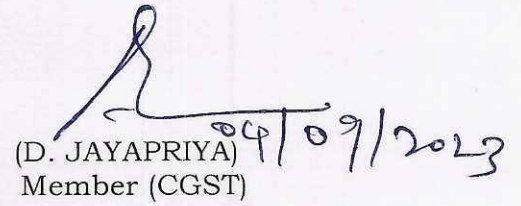 04/09/2023
(D. JAYAPRIYA)
Member (CGST)